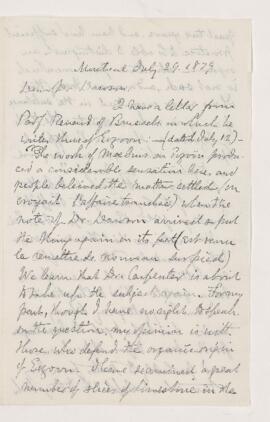 Montreal July 29. 1879
Dear Dr Dawson
I have a letter from
Prof Renard of Brussels in which he
writes thus of Eozoon :— (dated July 12) —
"The work of Moebius on Eozoon produc-
ed a considerable sensation here, and
people believed the matter settled (on
croyait l'affaire tranchée) when the
note of Dr. Dawson arrived to put
the thing again on its feet (est venu
la remettre de nouveau sur pied)
We learn that Dr Carpenter is about
to take up the subject again. For my
part, though I have no right to speak
on the question, my opinion is with
those who defend the organic origin
of Eozoon. I have examined a great
number of slices of limestone in the